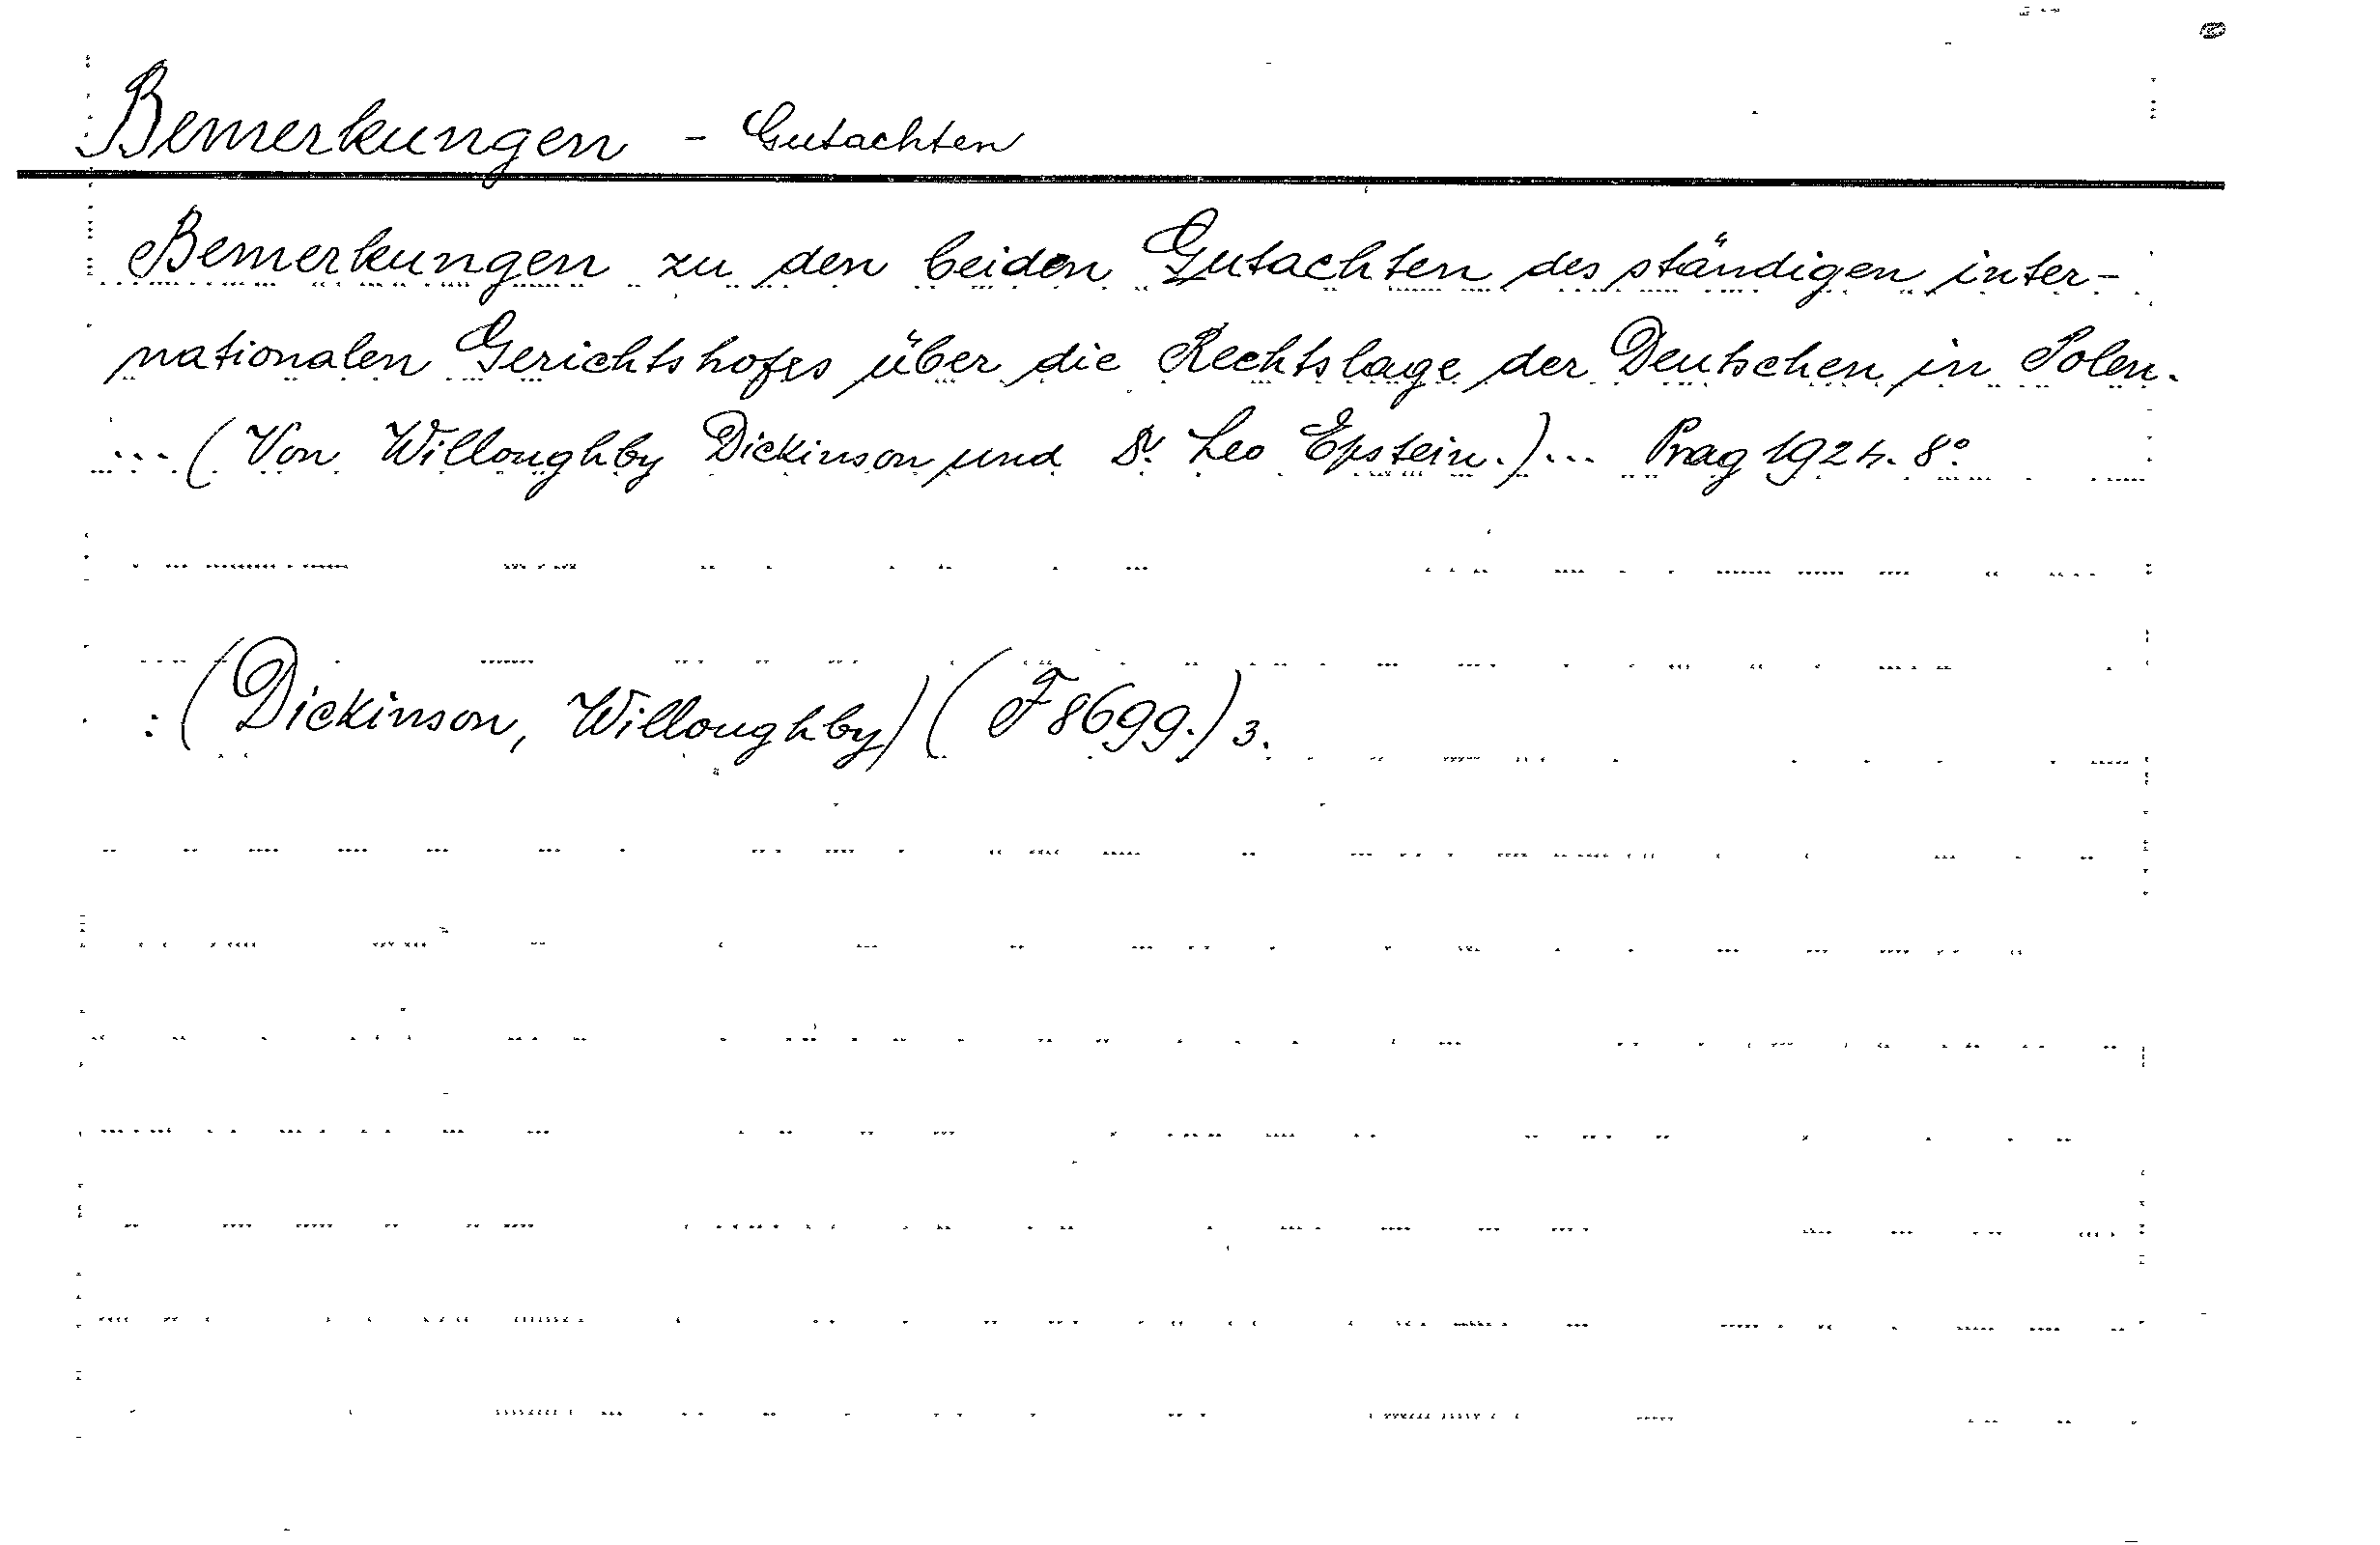 Bemerkungen - Gutachten
Bemerkungen zu den beiden Gutachten des ständigen inter-
nationalen Gerichtshofes über die Rechtslage der Deutschen in Polen.
... (Von Willoughby Dickinson und Dr. Leo Epstein.)... Prag 1924. 8°.
:(Dickinson, Willoughby) (F 8699.) 3.